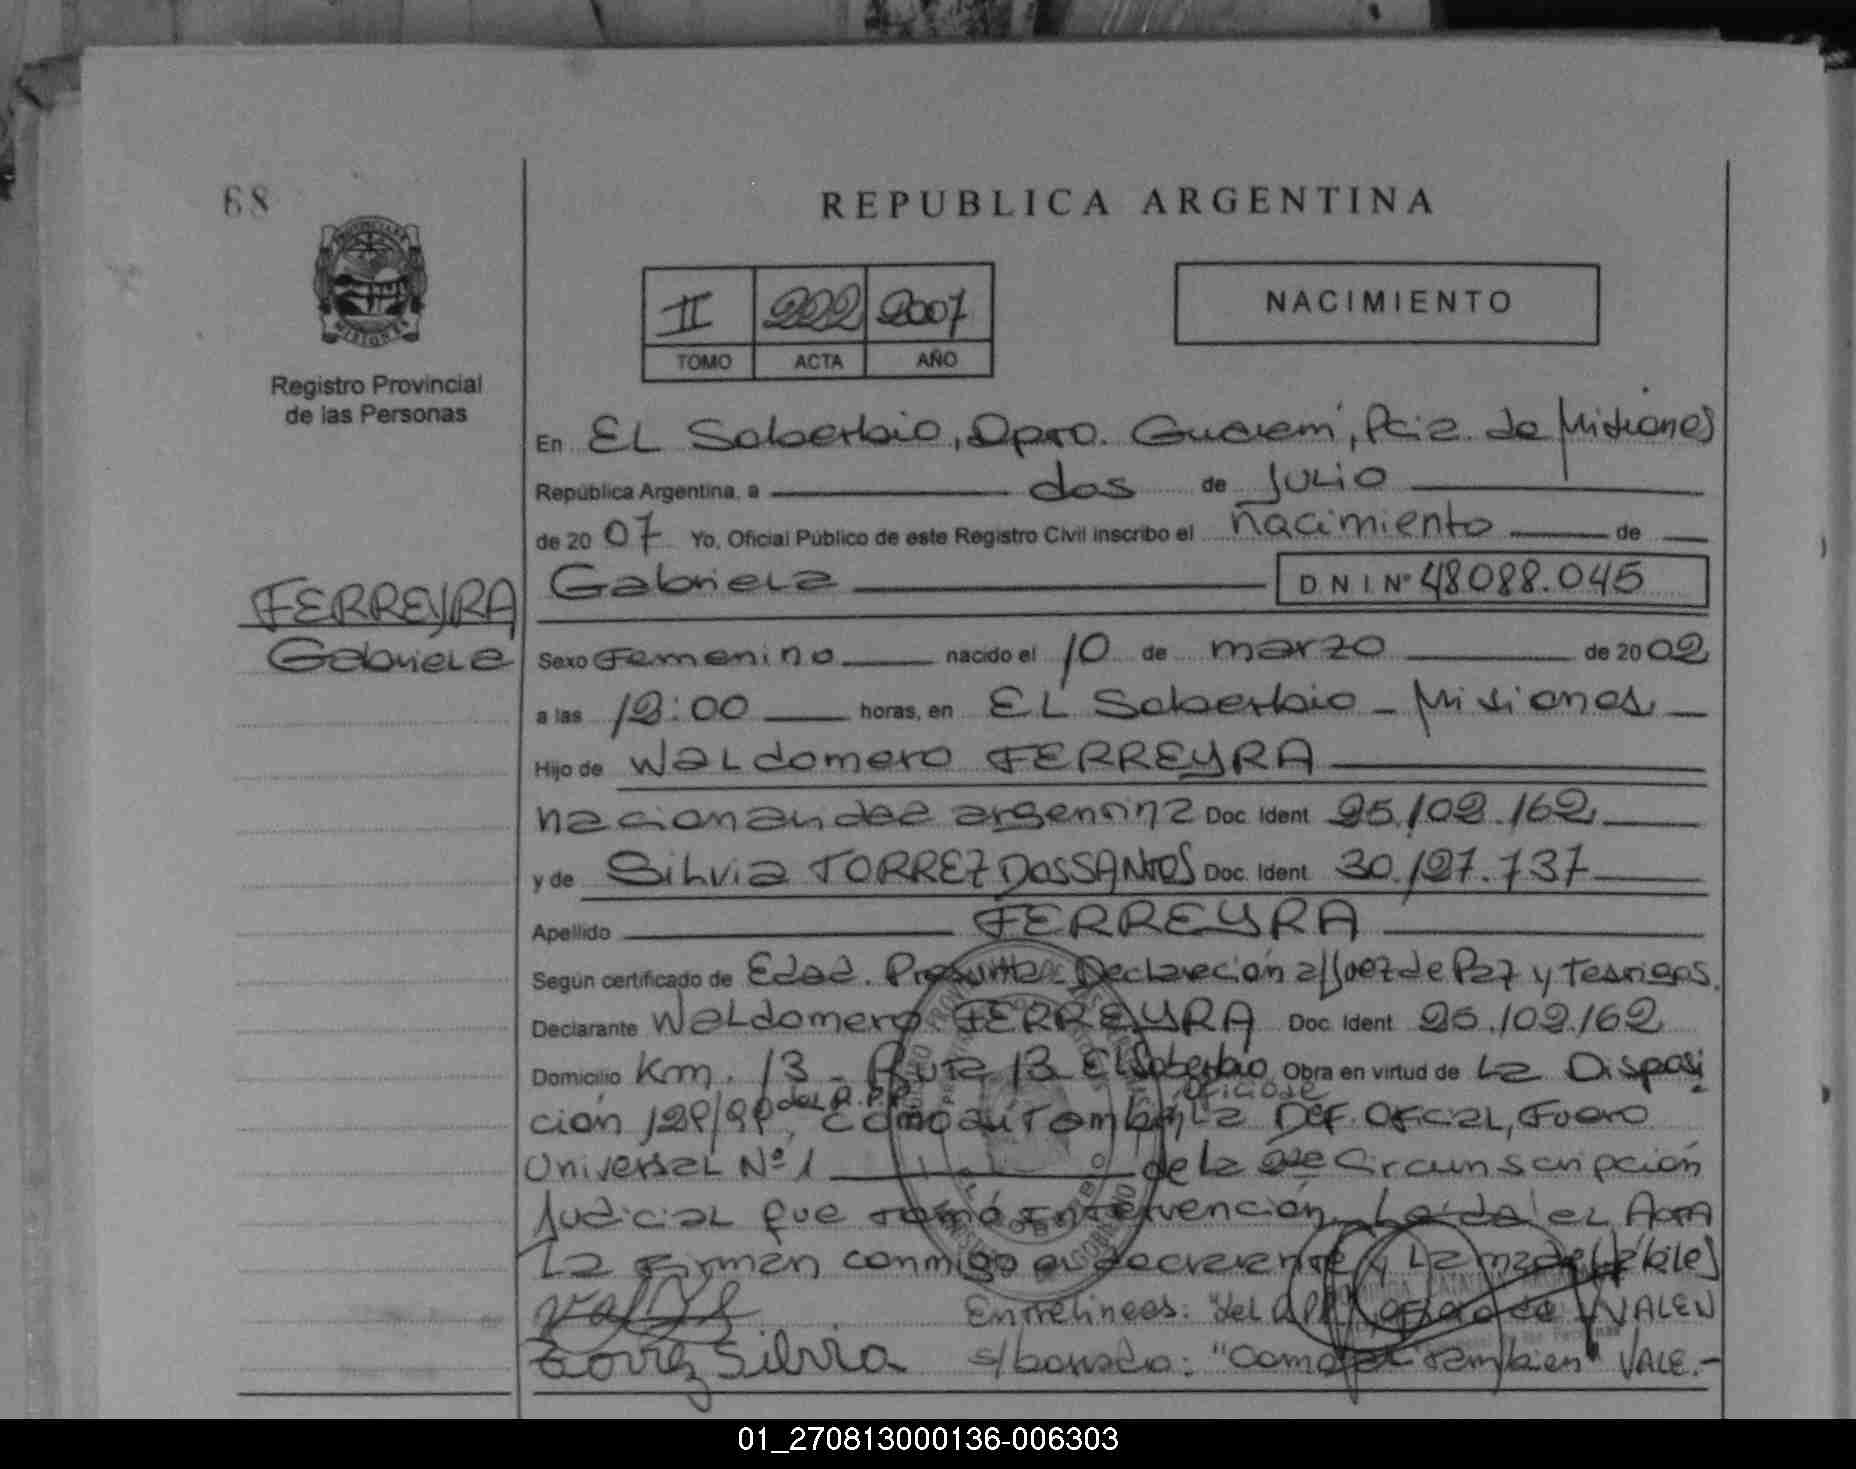 68
REPUBLICA ARGENTINA
II 222 2007
TOMO ACTA AÑO
NACIMIENTO
Registro Provincial
de las Personas
En EL Soberbio, Dpto. Guaraní, Pcia. de Misiones
República Argentina, a dos de Julio
de 2007 Yo, Oficial Público de este Registro Civil inscribo el nacimiento de
Gabriela D N I N° 48088.045
FERREYRA
Gabriela
Sexo Femenino nacido el 10 de marzo de 2002
a las 12:00 horas, en EL Soberbio - Misiones
Hijo de Waldomero FERREYRA
argentina Doc. Ident 25.102.162
y de Silvia TORREZ DOSSANTOS Doc. Ident 30.127.737
Apellido FERREYRA
Según certificado de Edad. Presunta Declaración a/Juez de Paz y Testigos.
Declarante Waldomero FERREYRA Doc. Ident 25.102.162
Domicilio Km. 13 - Ruta 13 El Soberbio Obra en virtud de La Disposi
ción del R.P.P. como así también oficio de La DEF. OFICIAL, Fuero
Universal Nº 1 de la 2da Circunscripción
Judicial que tomó intervención. Leída el Acta
La firman conmigo el declarante y La madre
Entrelineas: "del R.P.P", oficio de VALEN
Torrez Silvia s/borrado: "Como así también" VALE.-
01_270813000136-006303